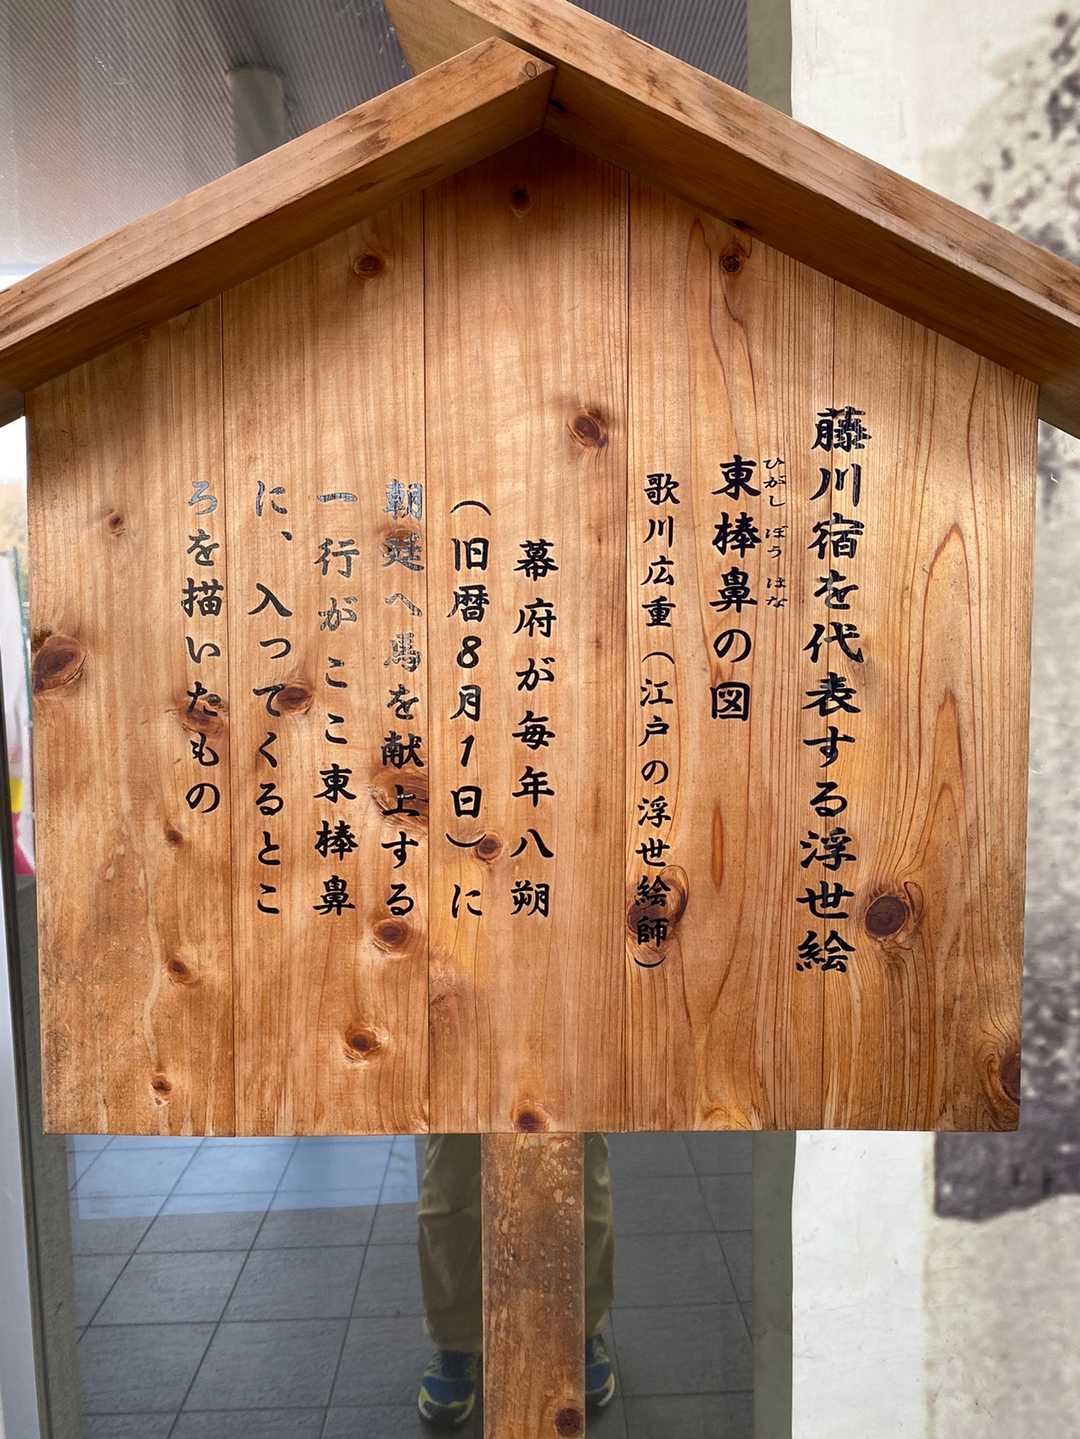 藤川宿を代表する浮世絵
ひがし ぼう はな
東棒鼻の図
歌川広重（江戸の浮世絵師）
幕府が毎年八朔
（旧暦8月1日）に
朝廷へ馬を献上する
一行がここ東棒鼻
に、入ってくるとこ
ろを描いたもの